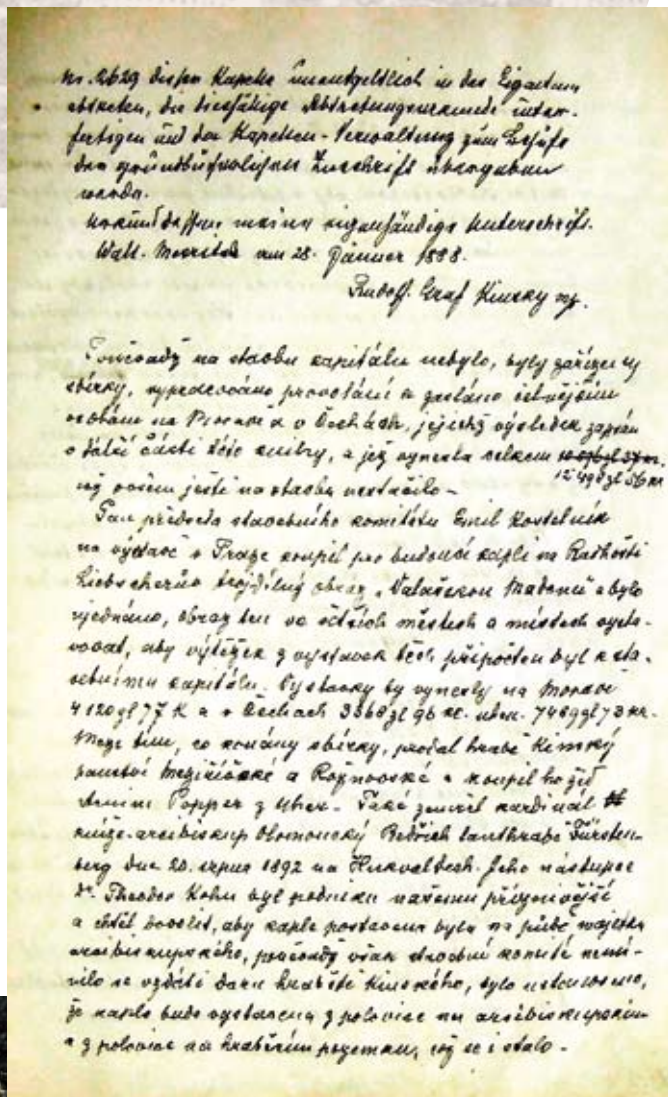 Nr. 2629 dieser Kapelle unentgeltlich in das Eigentum
abtreten, die diesfällige Abtretungsurkunde unter-
fertigen und der Kapellen-Verwaltung zum Behufe
der grundbücherlichen Zuschrift übergeben
werde.
Urkund dessen meine eigenhändige Unterschrift.
Wall. Meseritsch am 28. Jänner 1888.
Rudolf Graf Kinsky mp.
Poněvadž na stavbu kapitálu nebylo, byly zařízeny
sbírky, vypracováno provolání a zasláno četnějším
osobám na Moravě a v Čechách, jejichž výsledek zapsán
v další části této knihy, a jež vynesla celkem
12498 zl 56 kr
což ovšem ještě na stavbu nestačilo -
Pan předseda stavebního komitétu Emil Kostelník
na výstavě v Praze koupil pro budoucí kapli na Radhošti
Liebscherův trojdílný obraz „Valašskou Madonu" a bylo
ujednáno, obraz ten ve větších městech a místech vysta-
vovat, aby výtěžek z výstavek těch připočten byl k sta-
vebnímu kapitálu. Výstavky ty vynesly na Moravě
4120 zl 77 K a v Čechách 3368 zl 96 kr. uhrn. 7489 zl 73 kr.
Mezi tím, co konány sbírky, prodal hrabě Kinský
panství Meziříčské a Rožnovské a koupil ho žid
Armin Popper z Uher. Také zemřel kardinál
kníže-arcibiskup Olomoucký Bedřich lantkrabě Fürsten-
berg dne 20. srpna 1892 na Hukvaldech. Jeho nástupce
Dr. Theodor Kohn byl podniku našemu příznivější
a chtěl dovolit, aby kaple postavena byla na půdě majetku
arcibiskupského, poněvadž však stavební komité nemí-
nilo se vzdáti daru hraběte Kinského, bylo ustanoveno,
že kaple bude vystavena z polovice na arcibiskupském
a z polovice na hraběcím pozemku, což se i stalo -